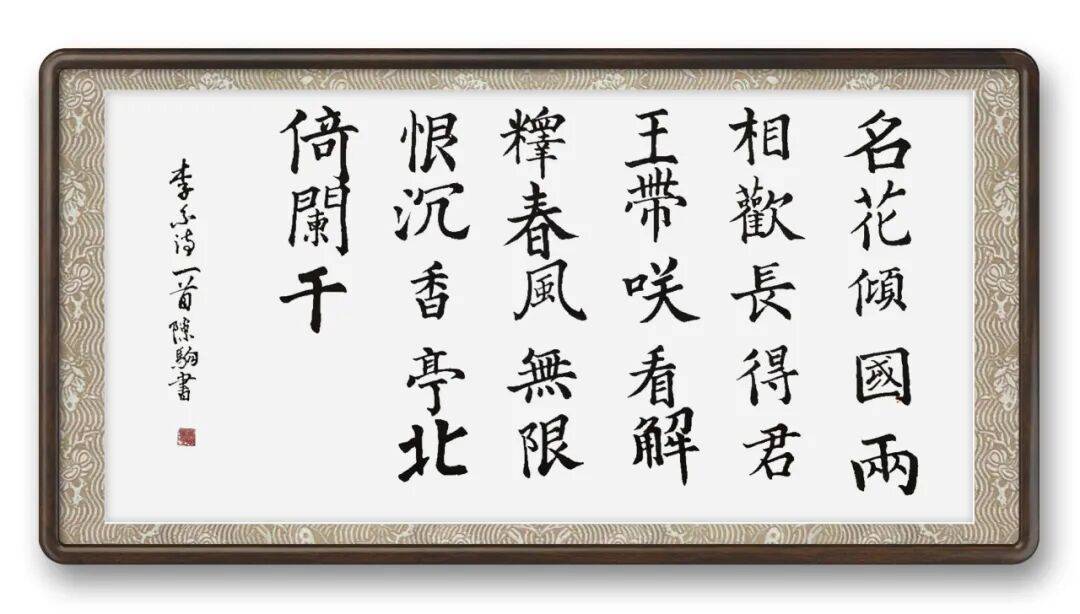 名花傾國兩
相歡長得君
王帶咲看解
釋春風無限
恨沉香亭北
倚闌干
李白詩一首陳駒書